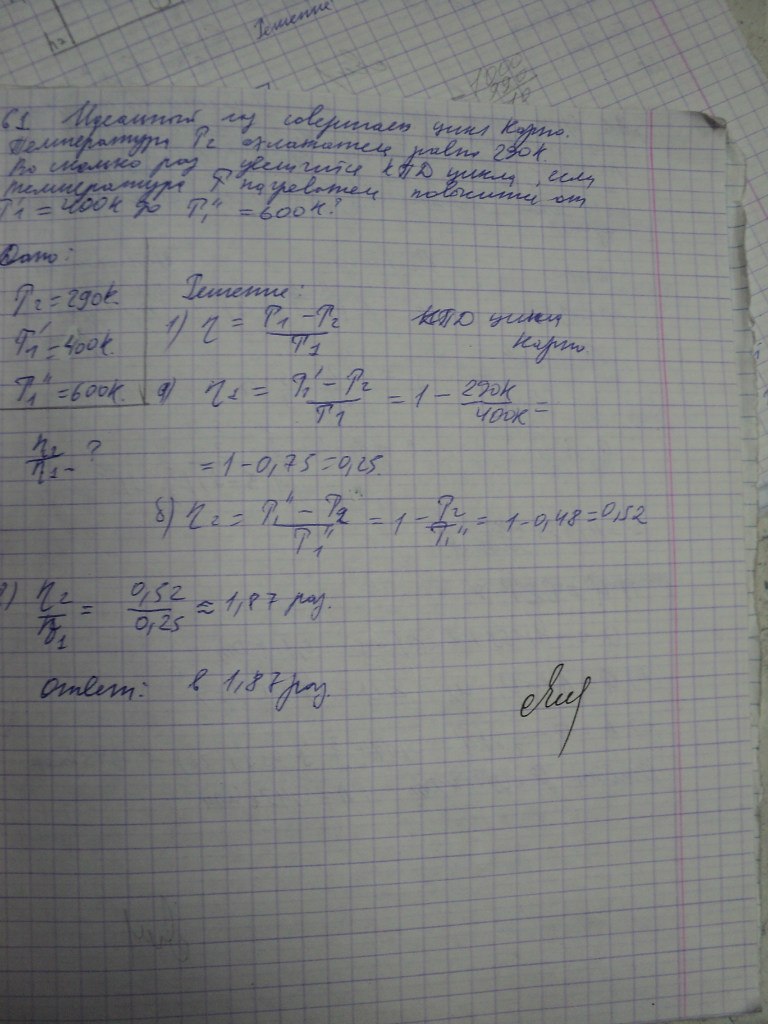 Решение
61 Идеальный газ совершает цикл Карно.
Температура T₂ охлажателя равна 290К.
Во сколько раз увеличится КПД цикла, если
температура T нагревателя повысится от
T₁' = 400К до T₁'' = 600К?
Дано:
T₂ = 290К.
T₁' = 400К.
T₁'' = 600К.
η₂/η₁ - ?
Решение:
1) η = (T₁ - T₂)/T₁ КПД цикла
Карно.
а) η₁ = (T₁' - T₂)/T₁ = 1 - 290К/400К =
= 1 - 0,75 = 0,25.
б) η₂ = (T₁'' - T₂)/T₁'' = 1 - T₂/T₁'' = 1 - 0,48 = 0,52
в) η₂/η₁ = 0,52/0,25 ≈ 1,87 раз.
Ответ: в 1,87 раз.